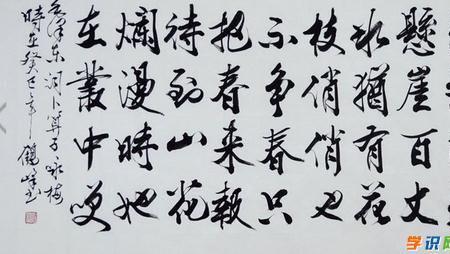 懸崖百丈
冰猶有花
枝俏俏也
不争春只
把春來報
待到山花
爛漫時她
在叢中咲
毛澤東词卜算子咏梅
時在癸巳年鶴峰书
学识网